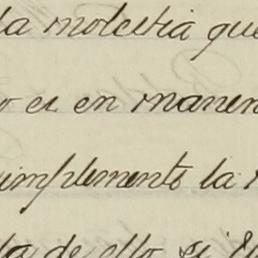 la molestia que
o es en manen
umplemento la
la de ello si El